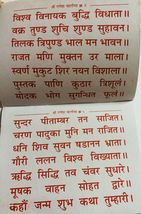 विश्व विनायक बुद्धि विधाता॥
वक्र तुण्ड शुचि शुण्ड सुहावन।
तिलक त्रिपुण्ड भाल मन भावन॥
राजत मणि मुक्तन उर माला।
स्वर्ण मुकुट शिर नयन विशाला॥
पुस्तक पाणि कुठार त्रिशूलं।
मोदक भोग सुगन्धित फूलं॥
सुन्दर पीताम्बर तन साजित।
चरण पादुका मुनि मन राजित॥
धनि शिव सुवन षडानन भ्राता।
गौरी ललन विश्व विख्याता॥
ऋद्धि सिद्धि तव चंवर सुधारे।
मूषक वाहन सोहत द्वारे॥
कहौं जन्म शुभ कथा तुम्हारी।